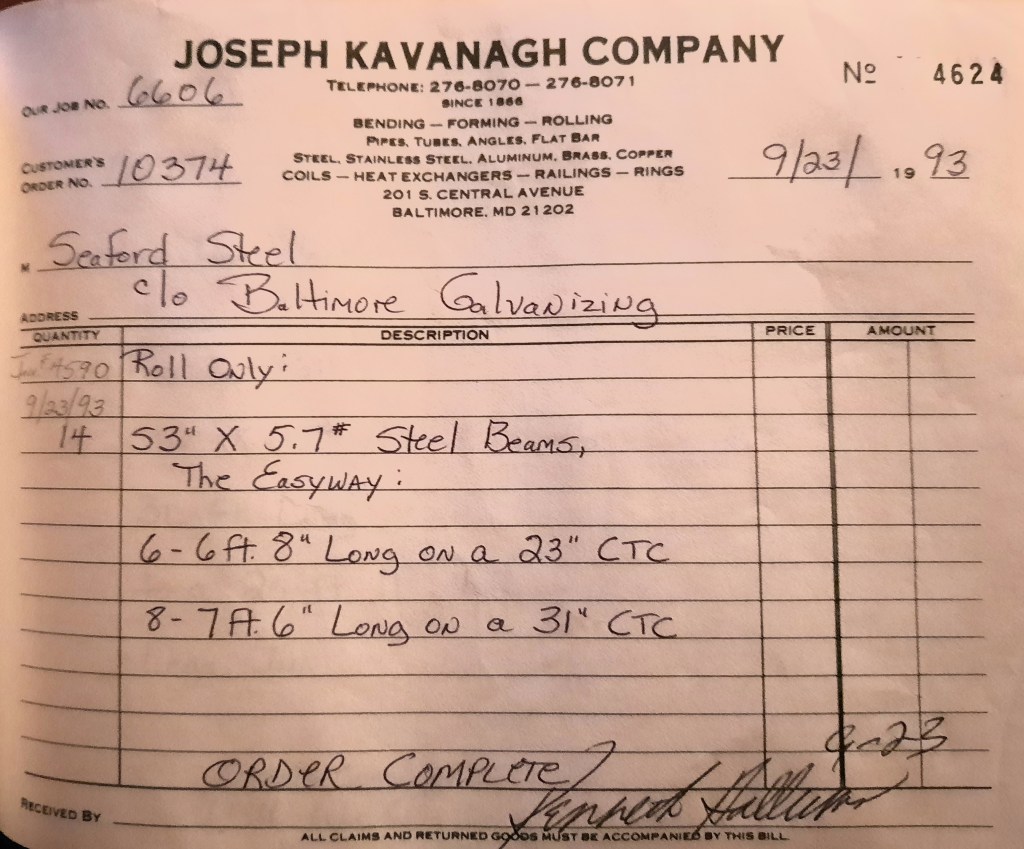 JOSEPH KAVANAGH COMPANY
Nº 4624
TELEPHONE: 276-8070 — 276-8071
OUR JOB NO. 6606
SINCE 1866
BENDING — FORMING — ROLLING
PIPES, TUBES, ANGLES, FLAT BAR
STEEL, STAINLESS STEEL, ALUMINUM, BRASS, COPPER
CUSTOMER'S ORDER NO. 10374
COILS — HEAT EXCHANGERS — RAILINGS — RINGS
9/23/ 1993
201 S. CENTRAL AVENUE
BALTIMORE, MD 21202
M Seaford Steel
ADDRESS c/o Baltimore Galvanizing
QUANTITY DESCRIPTION PRICE AMOUNT
4590 Roll Only:
9/23/93
14 S3" X 5.7# Steel Beams,
The Easyway:
6-6ft. 8" Long on a 23" CTC
8-7ft. 6" Long on a 31" CTC
9-23
ORDER COMPLETE
RECEIVED BY Kenneth
ALL CLAIMS AND RETURNED GOODS MUST BE ACCOMPANIED BY THIS BILL